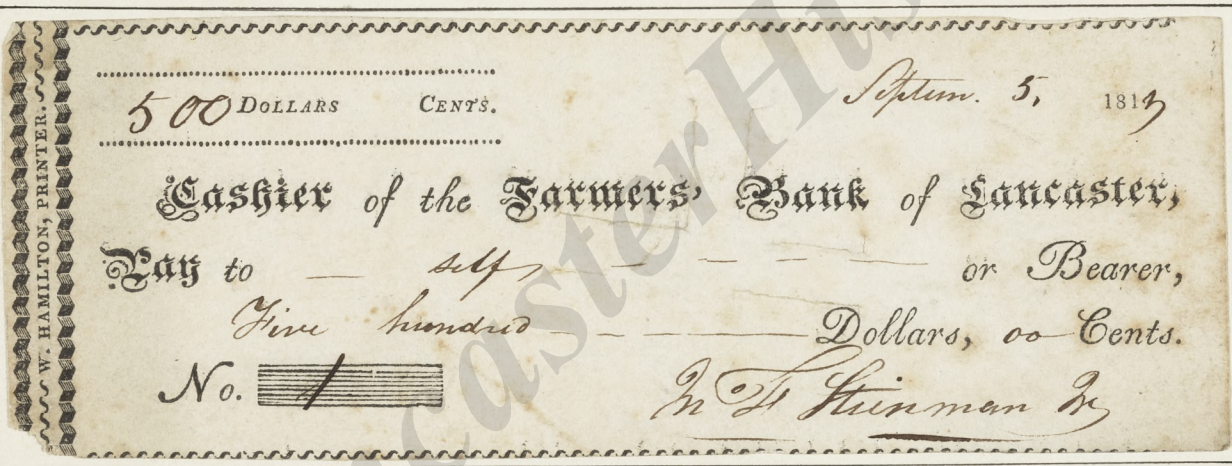 W. HAMILTON, PRINTER.
500 DOLLARS CENTS.
Septem. 5, 181
Cashier of the Farmers' Bank of Lancaster,
Pay to — self, — — — — — or Bearer,
Five hundred — — — — Dollars, 00 Cents.
No. 1
F Steinman